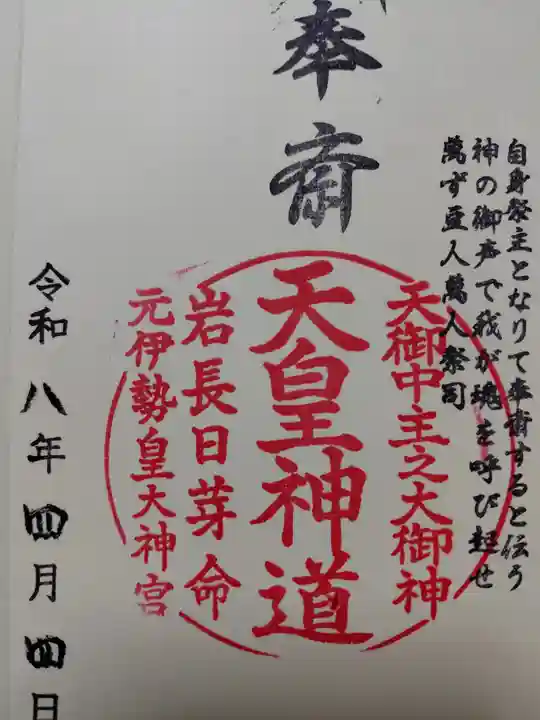 奉斎
自身祭主となりて奉斎すると伝う
神の御声で我が魂を呼び起せ
萬ず亘人萬人祭司
天御中主之大御神
天皇神道
岩長日芽命
元伊勢皇大神宮
令和八年四月四日